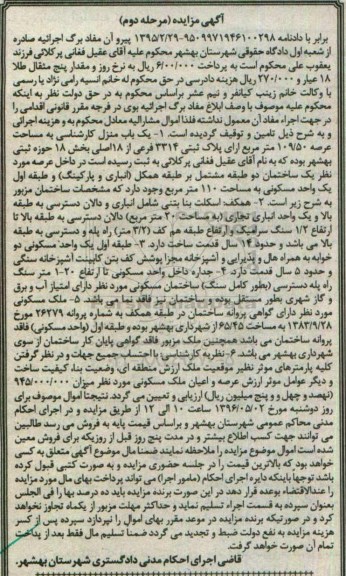 آگهی مزایده (مرحله دوم)
برابر با دادنامه ۹۵۰۹۹۷۱۹۴۶۱۰۰۲۹۸-۱۳۹۵/۲/۲۹ پیرو آن مفاد برگ اجرائیه صادره
از شعبه اول دادگاه حقوقی شهرستان بهشهر محکوم علیه آقای عقیل فغانی پرکلائی فرزند
یعقوب علی محکوم است به پرداخت ۶/۰۰۰/۰۰۰ ریال به نرخ روز و مقدار پنج مثقال طلا
۱۸ عیار و ۲۷۰/۰۰۰ ریال هزینه دادرسی در حق محکوم له خانم انسیه رامی نژاد با رسمی
با وکالت خانم زینب کیانفر و نیم عشر براساس محکوم به در حق دولت نظر به اینکه
محکوم علیه موصوف با وصف ابلاغ مفاد برگ اجرائیه بوی در فرجه مقرر قانونی اقدامی را
در جهت اجراء مفاد آن معمول نداشته فلذا اموال مشارالیه معادل محکوم به و هزینه اجرائی
و به شرح ذیل تامین و توقیف گردیده است. ۱- یک باب منزل کارشناسی به مساحت
عرصه ۱۰۹/۵۰ متر مربع آرای پلاک ثبتی ۳۳۱۴ فرعی از ۱۸اصلی بخش ۱۸ حوزه ثبتی
بهشهر بوده که به نام آقای عقیل فغانی پرکلائی به ثبت رسیده است در داخل عرصه مورد
نظر یک ساختمان دو طبقه مشتمل بر طبقه همکف (انباری و پارکینگ) و طبقه اول
یک واحد مسکونی به مساحت ۱۱۰ متر مربع وجود دارد که مشخصات ساختمان مزبور
به شرح زیر است. ۲- همکف: اسکلت بنا بتنی شامل انباری و دالان دسترسی به طبقه
بالا و یک واحد انباری تجاری (به مساحت ۲۰ متر مربع) دالان دسترسی به طبقه بالا تا
ارتفاع ۱/۲ سنگ سرامیک و ارتفاع طبقه هم کف (۳/۲ متر) راه پله و دسترسی به طبقه
بالا می باشد و حدود ۱۴ سال قدمت ساخت دارد. ۳- طبقه اول یک واحد مسکونی دو
خوابه به همراه هال و پذیرایی و آشپزخانه مجزا پوشش کف بتن کابینت آشپزخانه سنگی
و حدود ۵ سال قدمت دارد. ۴- جداره داخل واحد مسکونی تا ارتفاع ۱-۲۰ متر سنگ
راه پله دسترسی (بطور کامل سنگ) ساختمان مسکونی مورد نظر دارای امتیاز آب و برق
و گاز شهری بطور مستقل بوده و ساختمان نیز فاقد نما می باشد. ۵- ملک مسکونی
مورد نظر دارای گواهی پروانه ساختمان در طبقه همکف به شماره پروانه ۲۶۲۷۹ مورخ
۱۳۸۳/۹/۲۸ به مساحت ۶۵/۴۵ از شهرداری بهشهر بوده و طبقه اول (واحد مسکونی) فاقد
پروانه ساختمان می باشد همچنین ملک مزبور فاقد گواهی پایان کار ساختمان از سوی
شهرداری بهشهر می باشد. ۶- نظریه کارشناسی: با احتساب جمیع جهات و در نظر گرفتن
کلیه پارمترهای موثر نظیر موقعیت ملک ارزش منطقه ای، وضعیت بنا، کیفیت ساخت
و دیگر عوامل موثر ارزش عرصه و اعیان ملک مسکونی مورد نظر میزان ۹۴۵/۰۰۰/۰۰۰
(نهصد و چهل و و پنج میلیون ریال) ارزیابی و تعیین می گردد. نتیجتا اموال موصوف برای
روز دوشنبه مورخ ۱۳۹۶/۰۵/۰۲ ساعت ۱۰ الی ۱۲ از طریق مزایده و در اجرای احکام
مدنی محاکم عمومی شهرستان بهشهر و براساس قیمت پایه به فروش می رسد طالبین
می توانند جهت کسب اطلاع بیشتر و در مدت پنج روز قبل از روزیکه برای فروش معین
شده است اموال موضوع مزایده را ملاحظه نمایند ضمنا مال موضوع آگهی متعلق به کسی
خواهد بود که بالاترین قیمت را در جلسه حضوری مزایده و به صورت کتبی قبول کرده
باشد توجها باینکه دایره اجرای احکام (مامور اجرا) می تواند پرداخت بهای مال مورد مزایده
را عندالاقتضاء بوعده قرار دهد در این صورت برنده مزایده باید ده درصد بها را فی المجلس
بعنوان سپرده به قسمت اجراء تسلیم نماید و حداکثر مهلت مزبور از یکماه تجاوز نخواهد
کرد و در صورتیکه برنده مزایده در موعد مقرر بهای اموال را نپردازد سپرده پس از کسر
هزینه مزایده به نفع دولت ضبط و تجدید می گردد ضمنا تسلیم مال فقط بعد از پرداخت
تمام آن صورت خواهد گرفت.
قاضی اجرای احکام مدنی دادگستری شهرستان بهشهر.